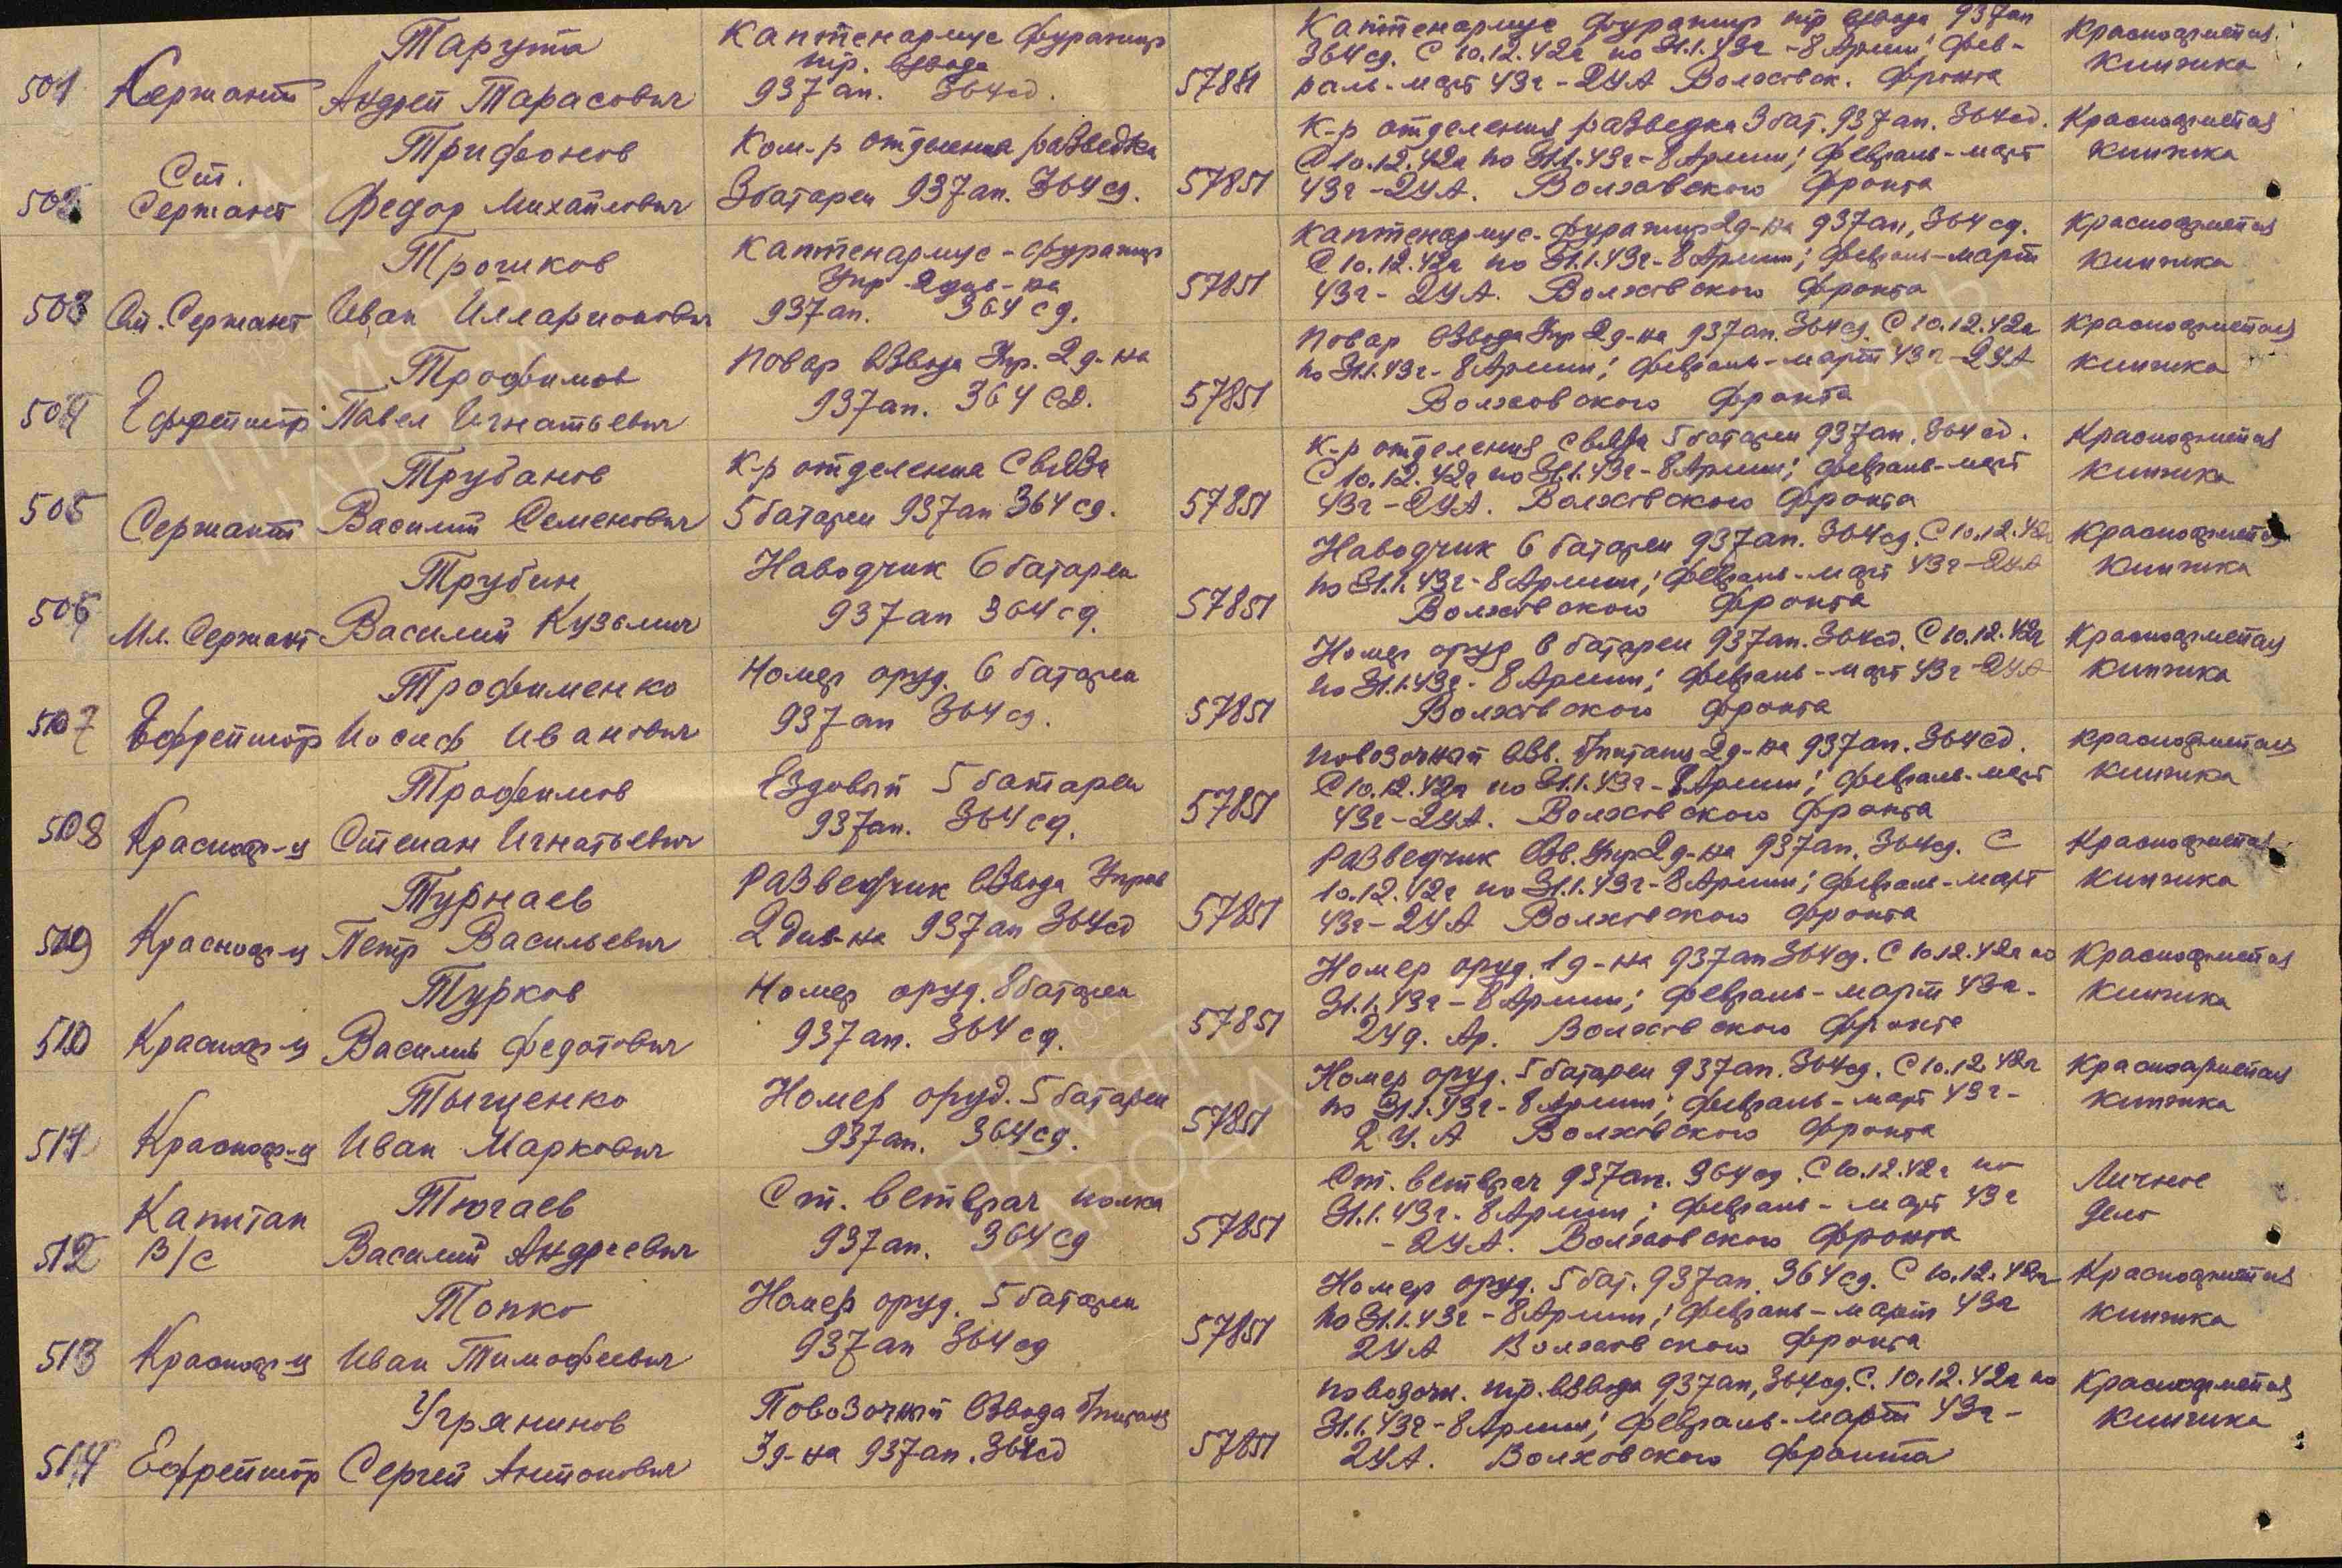 501 Сержант
Тарута
Андрей Тарасович
Каптенармус фуражир
тр. взвода
937 ап. 364 сд.
57851
Каптенармус фуражир тр взвода 937 ап
364 сд. С 10.12.42г по 31.1.43г - 8 Армии; фев-
раль-март 43г - 2УА Волховск. фронта
Красноармейская
книжка
502
Ст.
Сержант
Трифонов
Федор Михайлович
Ком-р отделения разведки
3 батареи 937 ап. 364 сд.
57851
К-р отделения разведки 3 бат. 937 ап. 364 сд.
С 10.12.42г по 31.1.43г - 8 Армии; февраль-март
43г - 2УА. Волховского фронта
Красноармейская
книжка
503 Ст. Сержант
Трошков
Иван Илларионович
Каптенармус - фуражир
Упр 2 див-на
937 ап. 364 сд.
57851
Каптенармус-фуражир 2 д-на 937 ап, 364 сд.
С 10.12.42г по 31.1.43г - 8 Армии; февраль-март
43г - 2УА. Волховского фронта
Красноармейская
книжка
504 Ефрейтор
Трофимов
Павел Игнатьевич
Повар взвода Упр. 2 д-на
937 ап. 364 СД.
57851
Повар взвода Упр 2 д-на 937 ап. 364 сд. С 10.12.42г
по 31.1.43г - 8 Армии; февраль-март 43г - 2УА
Волховского фронта
Красноармейская
книжка
505 Сержант
Трубанов
Василий Семенович
К-р отделения Связи
5 батареи 937 ап 364 сд.
57851
К-р отделения связи 5 батареи 937 ап, 364 сд.
С 10.12.42г по 31.1.43г - 8 Армии; февраль-март
43г - 2УА. Волховского фронта
Красноармейская
книжка
506 Мл. Сержант
Трубин
Василий Кузьмич
Наводчик 6 батареи
937 ап 364 сд.
57851
Наводчик 6 батареи 937 ап. 364 сд. С 10.12.42г
по 31.1.43г - 8 Армии; февраль-март 43г - 2УА
Волховского фронта
Красноармейская
книжка
507 Ефрейтор
Трофименко
Иосиф Иванович
Номер оруд. 6 батареи
937 ап 364 сд.
57851
Номер оруд 6 батареи 937 ап. 364 сд. С 10.12.42г
по 31.1.43г - 8 Армии; февраль-март 43г - 2УА
Волховского фронта
Красноармейская
книжка
508 Красноар-ц
Трофимов
Степан Игнатьевич
Ездовый 5 батареи
937 ап. 364 сд.
57851
Повозочный взв. б/питания 2 д-на 937 ап. 364 сд.
С 10.12.42г по 31.1.43г - 8 Армии; февраль-март
43г - 2УА. Волховского фронта
Красноармейская
книжка
509 Красноар-ц
Турнаев
Петр Васильевич
Разведчик взвода Управ
2 див-на 937 ап 364 сд
57851
Разведчик Вв. Упр 2 д-на 937 ап. 364 сд. С
10.12.42г по 31.1.43г - 8 Армии; февраль-март
43г - 2УА Волховского фронта
Красноармейская
книжка
510 Красноар-ц
Турков
Василий Федотович
Номер оруд. 8 батареи
937 ап. 364 сд.
57851
Номер оруд. 1 д-на 937 ап 364 сд. С 10.12.42г по
31.1.43г - 8 Армии; февраль-март 43г -
2 Уд. Ар. Волховского фронта
Красноармейская
книжка
511 Красноар-ц
Тыщенко
Иван Маркович
Номер оруд. 5 батареи
937 ап. 364 сд.
57851
Номер оруд. 5 батареи 937 ап. 364 сд. С 10.12.42г
по 31.1.43г - 8 Армии; февраль-март 43г -
2 У. А Волховского фронта
Красноармейская
книжка
512
Капитан
В/С
Тюгаев
Василий Андреевич
Ст. Ветврач полка
937 ап. 364 сд
57851
Ст. Ветврач 937 ап. 364 сд. С 10.12.42г по
31.1.43г - 8 Армии; февраль - март 43г
- 2УА. Волховского фронта
Личное
дело
513 Красноар-ц
Топко
Иван Тимофеевич
Номер оруд. 5 батареи
937 ап 364 сд
57851
Номер оруд. 5 бат. 937 ап. 364 сд. С 10.12.42г
по 31.1.43г - 8 Армии; февраль-март 43г
2УА Волховского фронта
Красноармейская
книжка
514 Ефрейтор
Угрянинов
Сергей Антонович
Повозочный взвода б/питания
3 д-на 937 ап. 364 сд
57851
Повозочн. тр. взвода 937 ап, 364 сд. С. 10.12.42г по
31.1.43г - 8 Армии; февраль-март 43г -
2УА. Волховского фронта
Красноармейская
книжка
ПАМЯТЬ
НАРОДА
ПАМЯТЬ
НАРОДА
ПАМЯТЬ
НАРОДА